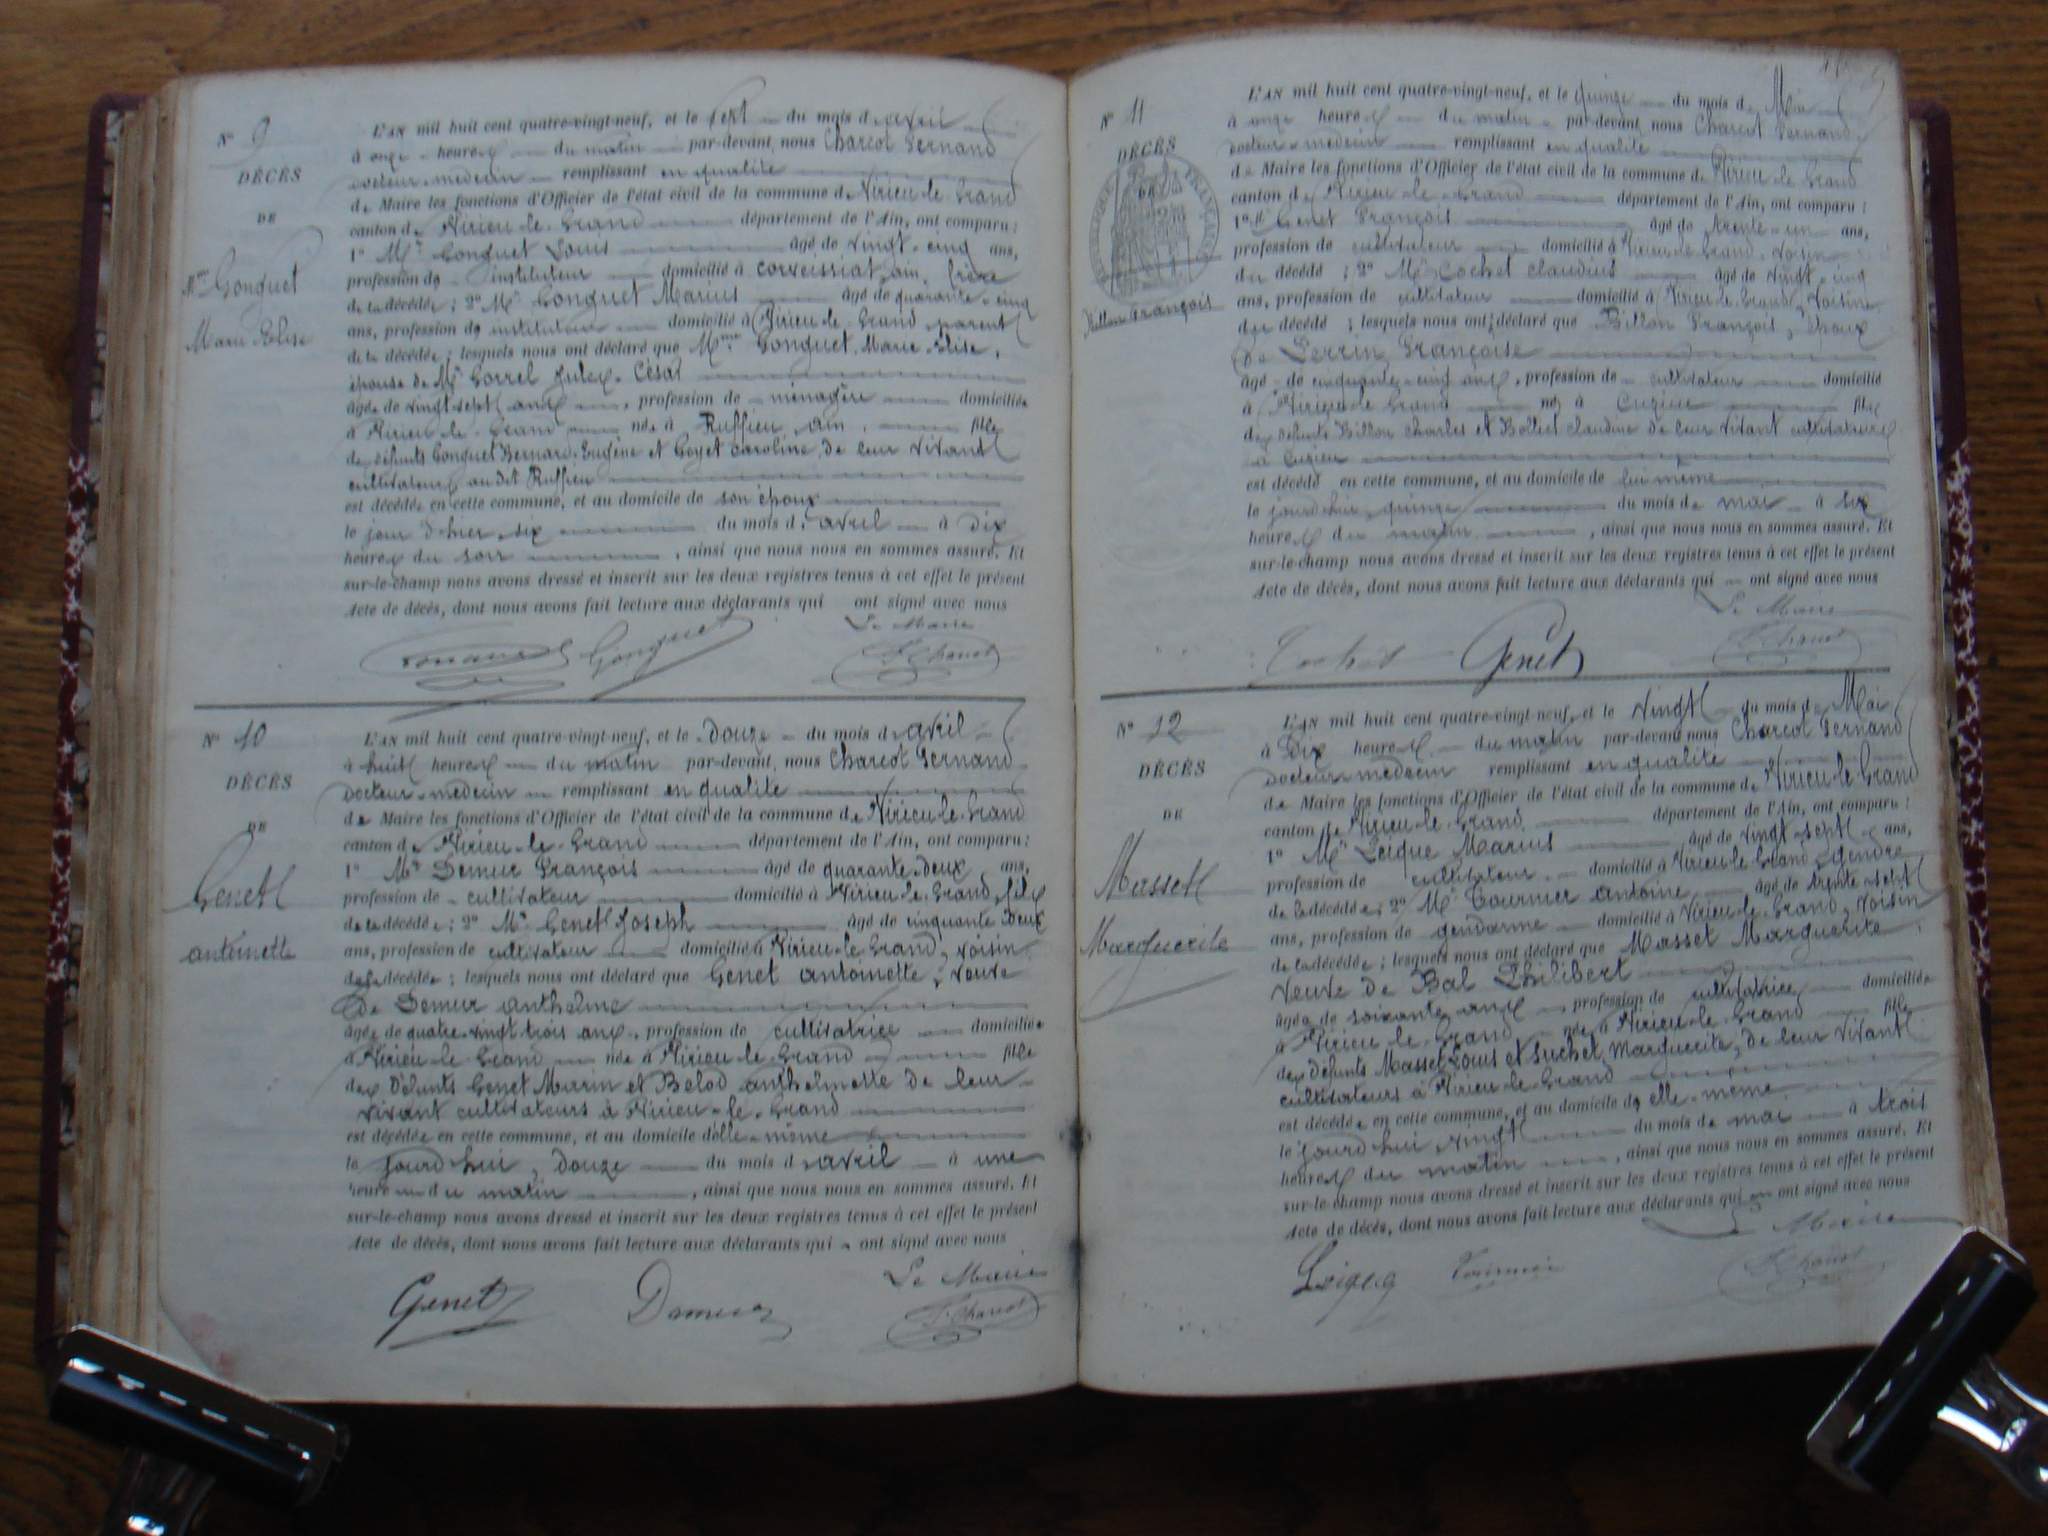 N° 9
DÉCÈS
DE
Mme Gonguet
Marie Elise
L'AN mil huit cent quatre-vingt-neuf, et le sept du mois d'avril
à onze heures du matin par-devant nous Charcot Fernand
docteur-médecin remplissant en qualité
de Maire les fonctions d'Officier de l'état civil de la commune de Virieu-le-Grand
canton de Virieu-le-Grand département de l'Ain, ont comparu :
1° Mr Gonguet Louis âgé de vingt-cinq ans,
profession de instituteur domicilié à Corveissiat, ain, frère
de la décédée ; 2° Mr Gonguet Marius âgé de quarante-cinq
ans, profession de instituteur domicilié à Virieu-le-Grand, parent
de la décédée ; lesquels nous ont déclaré que Mme Gonguet Marie-Elise,
épouse de Mr Gorrel Jules-César
âgée de vingt-sept ans, profession de ménagère domiciliée
à Virieu-le-Grand née à Ruffieu, ain, fille
des défunts Gonguet Bernard-Eugène et Goyet Caroline, de leur vivant
cultivateurs audit Ruffieu
est décédée en cette commune, et au domicile de son époux
le jour d'hier six du mois d'avril à dix
heures du soir, ainsi que nous nous en sommes assuré. Et
sur-le-champ nous avons dressé et inscrit sur les deux registres tenus à cet effet le présent
Acte de décès, dont nous avons fait lecture aux déclarants qui ont signé avec nous
Le Maire
Gonguet F. Charcot
N° 10
DÉCÈS
DE
Genet
antoinette
L'AN mil huit cent quatre-vingt-neuf, et le douze du mois d'avril
à huit heures du matin par-devant nous Charcot Fernand
docteur-médecin remplissant en qualité
de Maire les fonctions d'Officier de l'état civil de la commune de Virieu-le-Grand
canton de Virieu-le-Grand département de l'Ain, ont comparu :
1° Mr Demur François âgé de quarante-deux ans,
profession de cultivateur domicilié à Virieu-le-Grand, fils
de la décédée ; 2° Mr Genet Joseph âgé de cinquante deux
ans, profession de cultivateur domicilié à Virieu-le-Grand, voisin
de la décédée ; lesquels nous ont déclaré que Genet antoinette, veuve
de Demur anthelme
âgée de quatre-vingt-trois ans, profession de cultivatrice domiciliée
à Virieu-le-Grand née à Virieu-le-Grand fille
des défunts Genet Marin et Belod anthelmette de leur
vivant cultivateurs à Virieu-le-Grand
est décédée en cette commune, et au domicile d'elle-même
le jourd'hui, douze du mois d'avril à une
heure du matin, ainsi que nous nous en sommes assuré. Et
sur-le-champ nous avons dressé et inscrit sur les deux registres tenus à cet effet le présent
Acte de décès, dont nous avons fait lecture aux déclarants qui ont signé avec nous
Le Maire
Genet F. Charcot
N° 11
DÉCÈS
DE
RÉPUBLIQUE FRANÇAISE
Billon François
L'AN mil huit cent quatre-vingt-neuf, et le quinze du mois de Mai
à onze heures du matin par-devant nous Charcot Fernand
docteur-médecin remplissant en qualité
de Maire les fonctions d'Officier de l'état civil de la commune de Virieu-le-Grand
canton de Virieu-le-Grand département de l'Ain, ont comparu :
1° Mr Genet François âgé de trente-un ans,
profession de cultivateur domicilié à Virieu-le-Grand, voisin
du décédé ; 2° Mr Cochet Claudius âgé de vingt-cinq
ans, profession de cultivateur domicilié à Virieu-le-Grand, voisin
du décédé ; lesquels nous ont déclaré que Billon François, époux
de Perrin Françoise
âgé de cinquante-cinq ans, profession de cultivateur domicilié
à Virieu-le-Grand né à Cuzieu fils
des défunts Billon Charles et Bolliet Claudine de leur vivant cultivateurs
à Cuzieu
est décédé en cette commune, et au domicile de lui même
le jourd'hui, quinze du mois de mai à six
heures du matin, ainsi que nous nous en sommes assuré. Et
sur-le-champ nous avons dressé et inscrit sur les deux registres tenus à cet effet le présent
Acte de décès, dont nous avons fait lecture aux déclarants qui ont signé avec nous
Le Maire
Cochet Genet F. Charcot
N° 12
DÉCÈS
DE
Masset
Marguerite
L'AN mil huit cent quatre-vingt-neuf, et le vingt du mois de Mai
à dix heures du matin par-devant nous Charcot Fernand
docteur-médecin remplissant en qualité
de Maire les fonctions d'Officier de l'état civil de la commune de Virieu-le-Grand
canton de Virieu-le-Grand département de l'Ain, ont comparu :
1° Mr Marius âgé de vingt-sept ans,
profession de cultivateur domicilié à Virieu-le-Grand, gendre
de la décédée ; 2° Mr Tournier antoine, âgé de trente-sept
ans, profession de gendarme domicilié à Virieu-le-Grand, voisin
de la décédée ; lesquels nous ont déclaré que Masset Marguerite,
veuve de Bal Philibert
âgée de soixante ans profession de cultivatrice domiciliée
à Virieu-le-Grand née à Virieu-le-Grand fille
des défunts Masset Louis et Suchet Marguerite, de leur vivant
cultivateurs à Virieu-le-Grand
est décédée en cette commune, et au domicile de elle-même
le jourd'hui vingt du mois de mai à trois
heures du matin, ainsi que nous nous en sommes assuré. Et
sur-le-champ nous avons dressé et inscrit sur les deux registres tenus à cet effet le présent
Acte de décès, dont nous avons fait lecture aux déclarants qui ont signé avec nous
Le Maire
Tournier F. Charcot